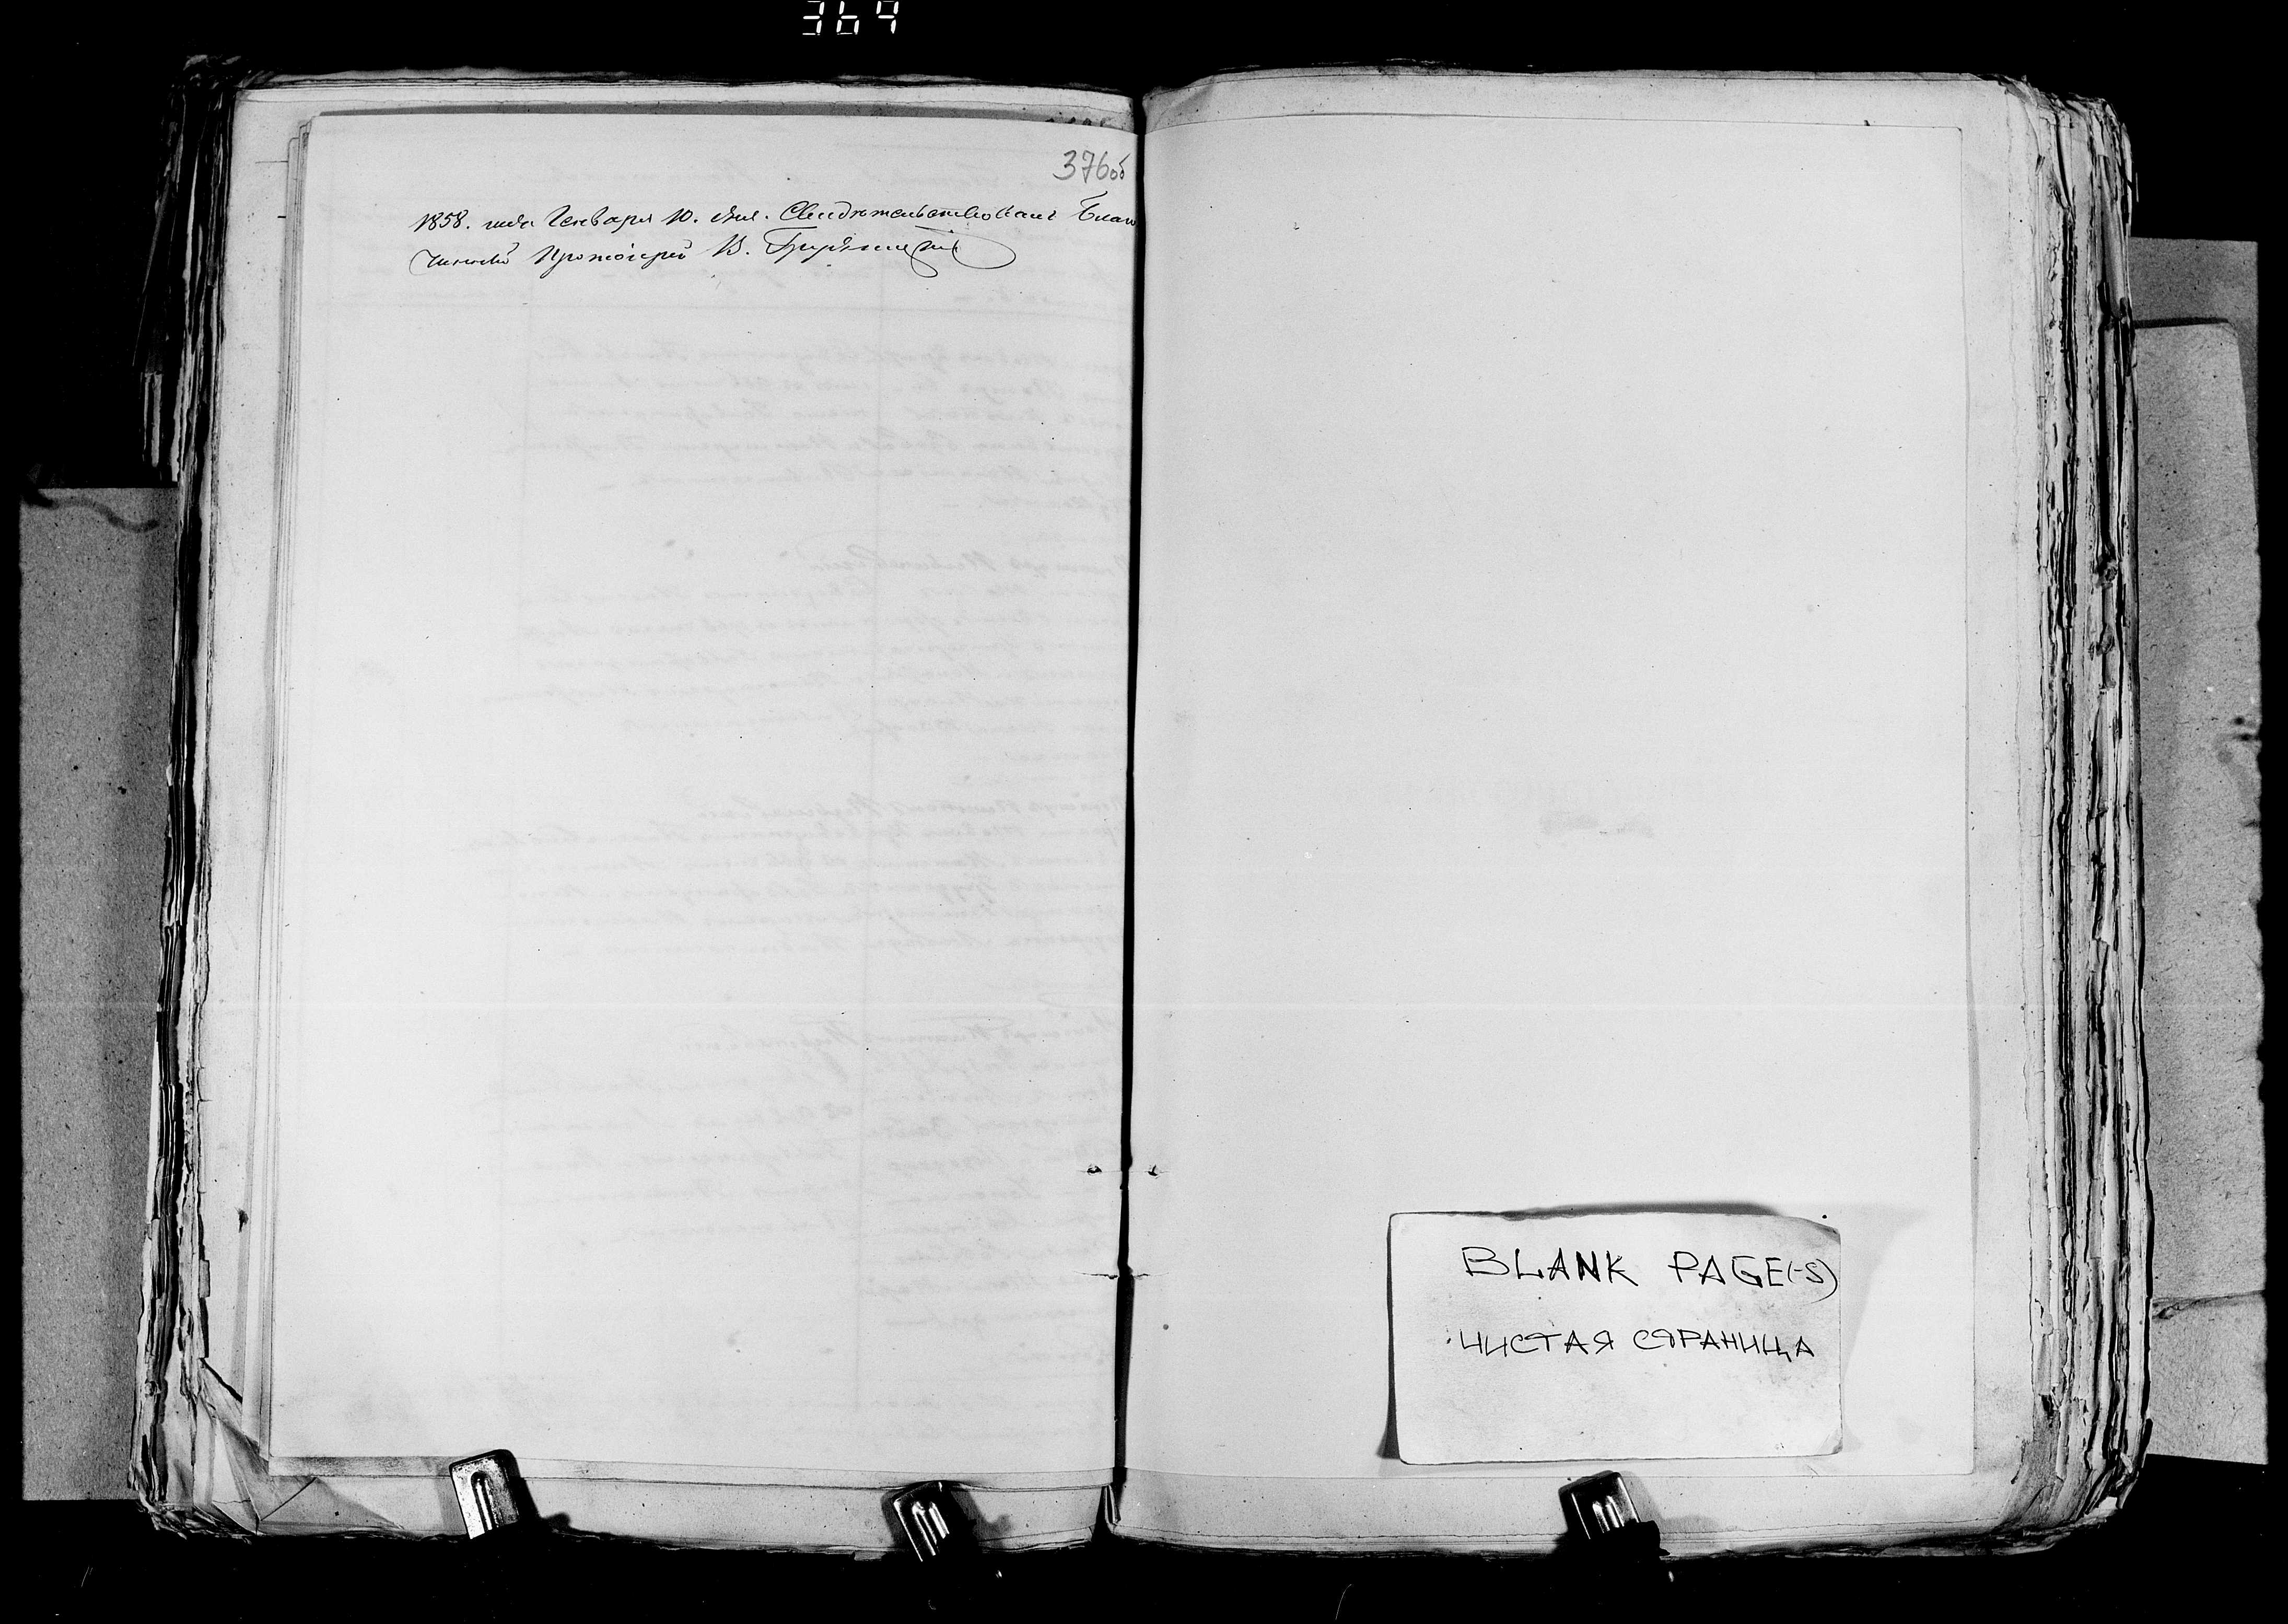 364
376об
1858. года Генваря 10. дня. Свидѣтельствовалъ Благо
чинный Протоіерей В.
BLANK PAGE(-S)
ЧИСТАЯ СТРАНИЦА